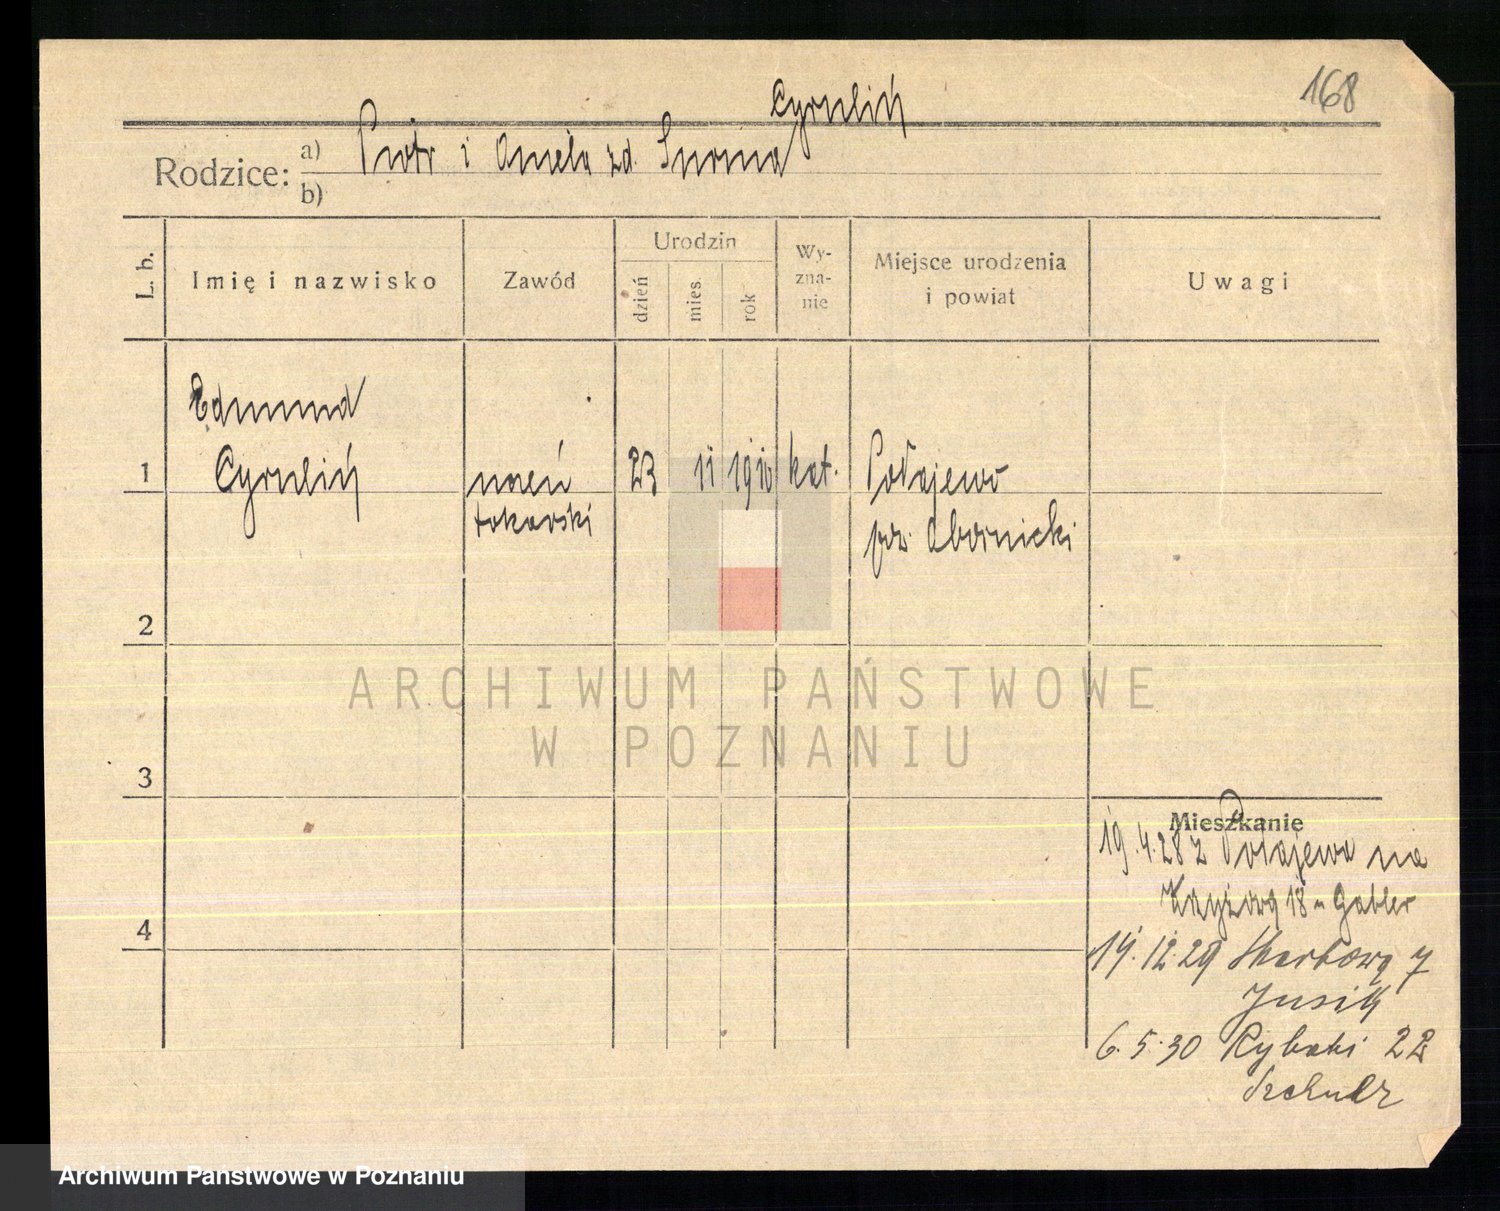 168
Cyrulik
Rodzice: a) Piotr i Aniela zd. Surma
b)
L. b. Imię i nazwisko Zawód Urodzin dzień mies. rok Wy-zna-nie Miejsce urodzenia i powiat Uwagi
Edmund
1 Cyrulik uczeń 23 11 1910 kat. Połajewo
tokarski pow. Obornicki
2
ARCHIWUM PAŃSTWOWE
W POZNANIU
3
Mieszkanie
19.4.28 z Połajewa na
Krzyżową 18 u Gabler
4
14.12.29 Skarbowa 7
Jusik
6.5.30 Rybaki 22
Archiwum Państwowe w Poznaniu